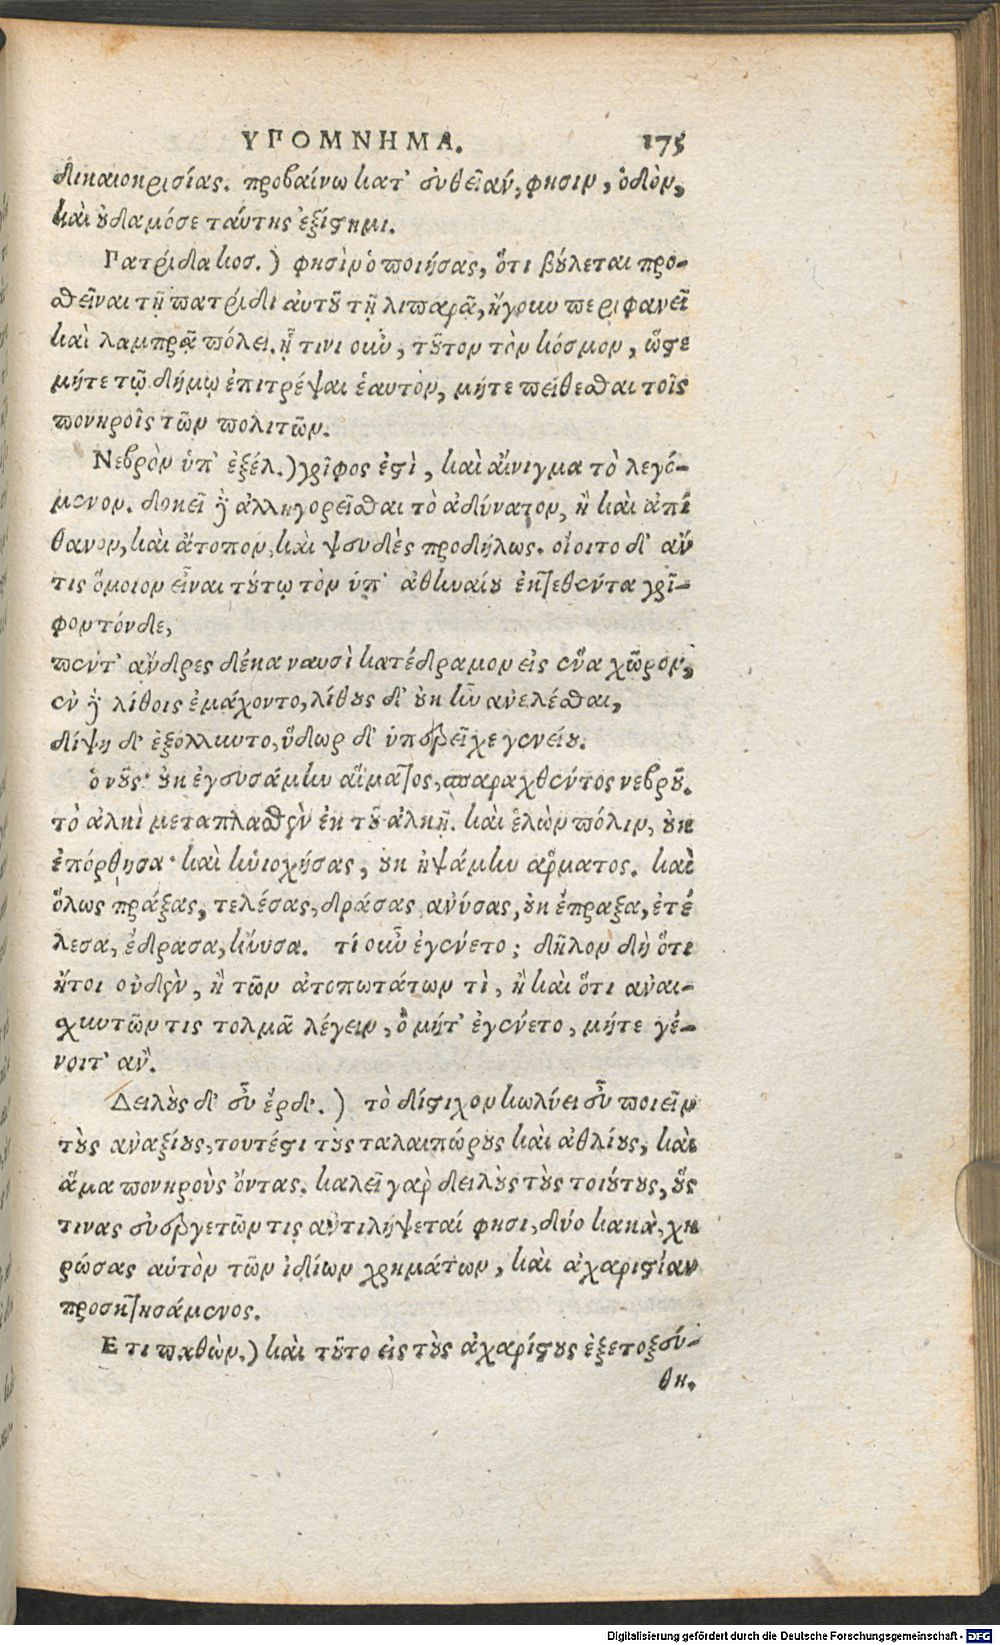 ΥΠΟΜΝΗΜΑ. 175
δικαιοκρισίας. προβαίνω κατ' εὐθεῖαν, φησιν, ὁδὸν,
καὶ οὐδαμόσε ταύτης ἐξίστημι.
Πατρίδα κοσ.) φησὶν ὁ ποιήσας, ὅτι βούλεται προ-
σθεῖναι τῇ πατρίδι αὐτοῦ τῇ λιπαρᾷ, ἤγουν περιφανεῖ
καὶ λαμπρᾷ πόλει, ᾗ τινι οὖν, τοῦτον τὸν κόσμον, ὥστε
μήτε τῷ δήμῳ ἐπιτρέψαι ἑαυτὸν, μήτε πείθεσθαι τοῖς
πονηροῖς τῶν πολιτῶν.
Νεβρὸν ὑπ' ἐξέλ.) γρῖφος ἐστὶ, καὶ αἴνιγμα τὸ λεγό-
μενον. δοκεῖ δὲ ἀλληγορεῖσθαι τὸ ἀδύνατον, ἢ καὶ ἀπί
θανον, καὶ ἄτοπον, καὶ ψευδὲς προδήλως. οἴοιτο δ' ἄν
τις ὅμοιον εἶναι τούτῳ τὸν ὑπ' ἀθηναίου ἐκτεθέντα γρῖ-
φον τόνδε,
πέντ' ἄνδρες δέκα ναυσὶ κατέδραμον εἰς ἕνα χῶρον,
ἐν δὲ λίθοις ἐμάχοντο, λίθους δ' οὐκ ἦν ἀνελέσθαι,
δίψῃ δ' ἐξόλλυντο, ὕδωρ δ' ὑπερεῖχε γενείου.
ὁ νοῦς· οὐκ ἐγευσάμην αἵματος, σπαραχθέντος νεβροῦ.
τὸ ἀλκὶ μεταπλασθὲν ἐκ τοῦ ἀλκῇ. καὶ ἑλὼν πόλιν, οὐκ
ἐπόρθησα· καὶ ἡνιοχήσας, οὐκ ἡψάμην ἅρματος. καὶ
ὅλως πράξας, τελέσας, δράσας, ἀνύσας, οὐκ ἔπραξα, ἐτέ
λεσα, ἔδρασα, ἤνυσα. τί οὖν ἐγένετο; δῆλον δὴ ὅτι
ἤτοι οὐδὲν, ἢ τῶν ἀτοπωτάτων τὶ, ἢ καὶ ὅτι ἀναι-
σχυντῶν τις τολμᾷ λέγειν, ὃ μήτ' ἐγένετο, μήτε γέ-
νοιτ' ἄν.
Δειλοὺς δ' εὖ ἔρδ'.) τὸ δίστιχον κωλύει εὖ ποιεῖν
τοὺς ἀναξίους, τουτέστι τοὺς ταλαιπώρους καὶ ἀθλίους, καὶ
ἅμα πονηροὺς ὄντας. καλεῖ γὰρ δειλοὺς τοὺς τοιούτους, οὓς
τινας εὐεργετῶν τις ἀντιλήψεταί φησι, δύο κακὰ, χη
ρώσας αὑτὸν τῶν ἰδίων χρημάτων, καὶ ἀχαριστίαν
προσκτησάμενος.
Ετι παθὼν.) καὶ τοῦτο εἰς τοὺς ἀχαρίστους ἐξετοξεύ-
θη.
Digitalisierung gefördert durch die Deutsche Forschungsgemeinschaft - DFG